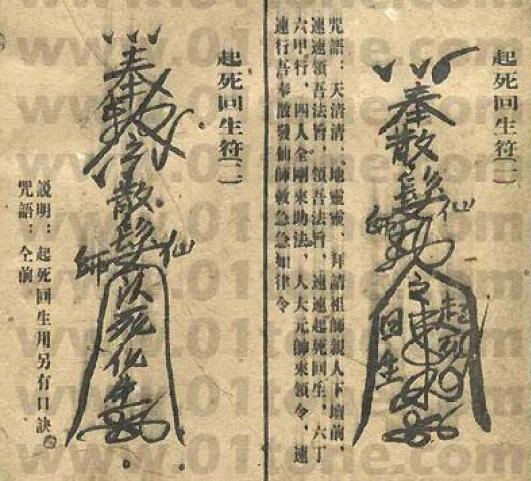 起死回生符(一)
奉散髮仙師勅令
起死
回生
咒語：天清清、地靈靈、拜請祖師親人下壇前，
速速領吾法旨，領吾法旨，速速起死回生，六丁
六甲行，四人全剛來助法，人大元帥來領令，速
速行吾奉散發仙師敕急急如律令
起死回生符(二)
奉勅令散髮仙師
死化生
說明：起死回生用另有口訣。
咒語：仝前